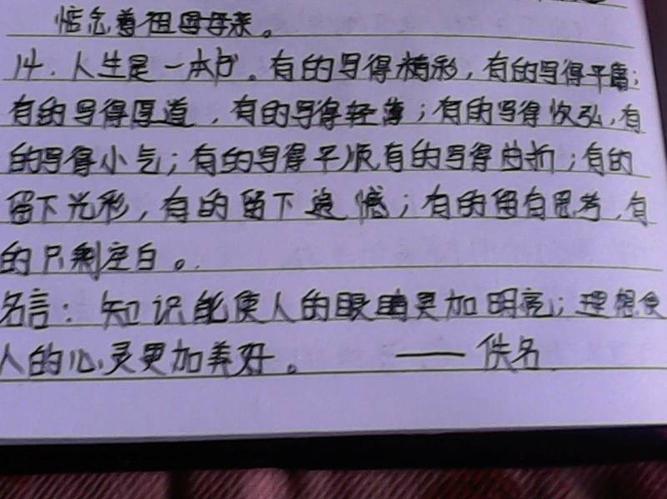 惦念着祖国母亲。
14.人生是一本书。有的写得精彩，有的写得平庸；
有的写得厚道，有的写得轻薄；有的写得恢弘，有
的写得小气；有的写得平顺有的写得曲折；有的
留下光彩，有的留下遗憾；有的留有思考，有
的只剩空白。
名言：知识能使人的眼睛更加明亮；理想使
人的心灵更加美好。 ——佚名